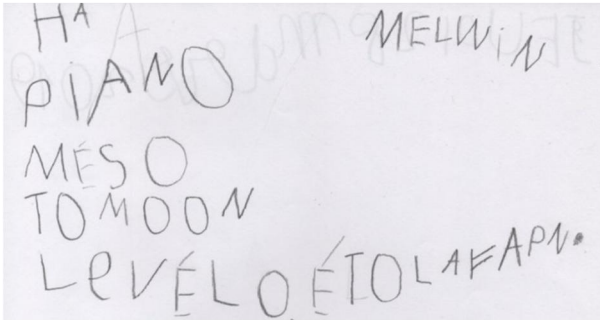 Ha
MELWiN
PIANO
MÉSO
TOMOON
LeVÉLOÉTOLAFAPN.